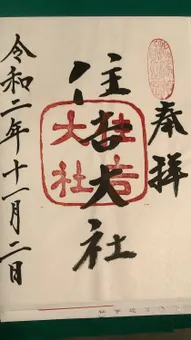 奉拝
住吉大社
住吉大社
令和二年十一月二日